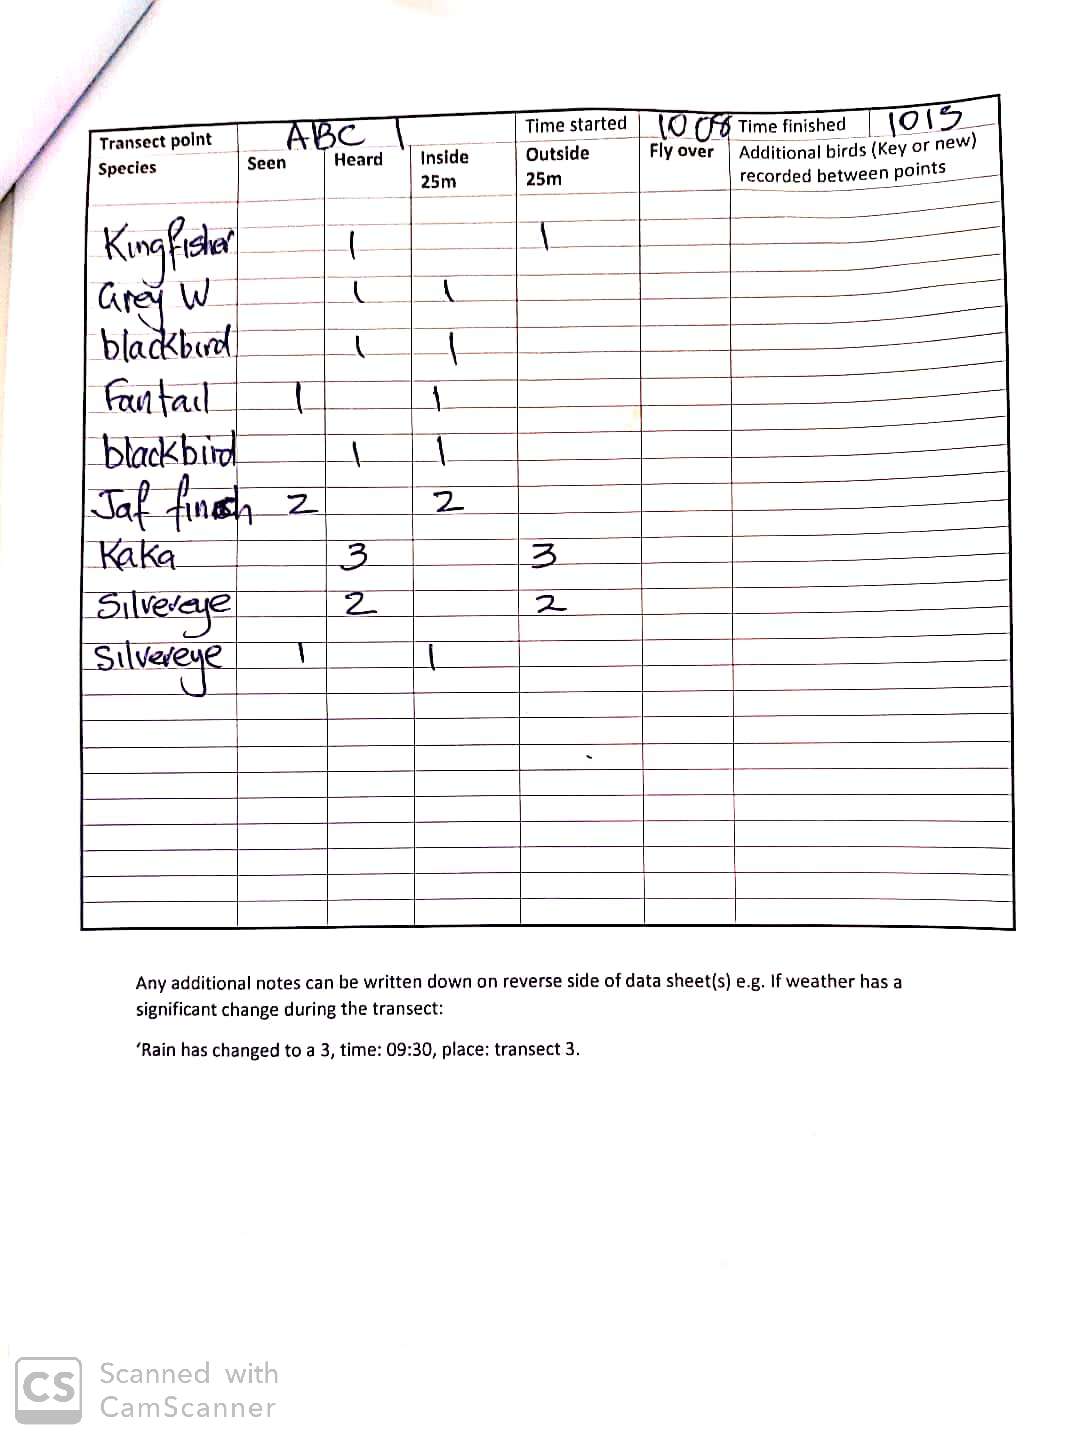 Transect point ABC 1 Time started 1008 Time finished 1015
Species Seen Heard Inside 25m Outside 25m Fly over Additional birds (Key or new) recorded between points
Kingfisher 1 1
Grey W 1 1
blackbird 1 1
Fantail 1 1
blackbird 1 1
Jaf finch 2 2
Kaka 3 3
Silvereye 2 2
Silvereye 1 1
Any additional notes can be written down on reverse side of data sheet(s) e.g. If weather has a
significant change during the transect:
‘Rain has changed to a 3, time: 09:30, place: transect 3.
CS
Scanned with
CamScanner